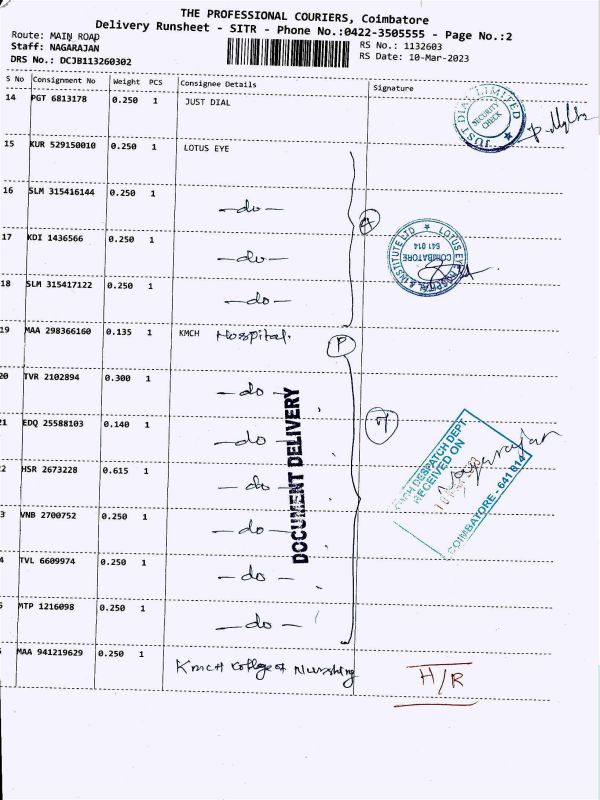 THE PROFESSIONAL COURIERS, Coimbatore
Delivery Runsheet - SITR - Phone No.:0422-3505555 - Page No.:2
Route: MAIN ROAD
Staff: NAGARAJAN
DRS No.: DCJB113260302
RS No.: 1132603
RS Date: 10-Mar-2023
S No Consignment No Weight PCS Consignee Details Signature
14 PGT 6813178 0.250 1 JUST DIAL
JUST DIAL LIMITED
SECURITY CHECK
15 KUR 529150010 0.250 1 LOTUS EYE
16 SLM 315416144 0.250 1 -do-
17 KDI 1436566 0.250 1 -do-
LOTUS EYE HOSPITAL & INSTITUTE LTD
COIMBATORE
641 014
18 SLM 315417122 0.250 1 -do-
19 MAA 298366160 0.135 1 KMCH Hospital.
P
20 TVR 2102894 0.300 1 -do-
21 EDQ 25588103 0.140 1 -do-
2 HSR 2673228 0.615 1 -do-
3 VNB 2700752 0.250 1 -do-
4 TVL 6609974 0.250 1 -do-
5 MTP 1216098 0.250 1 -do-
DOCUMENT DELIVERY
KMCH DESPATCH DEPT
RECEIVED ON
Nagarajan
COIMBATORE - 641 014
MAA 941219629 0.250 1 KMCH College of Nurshing
H/R